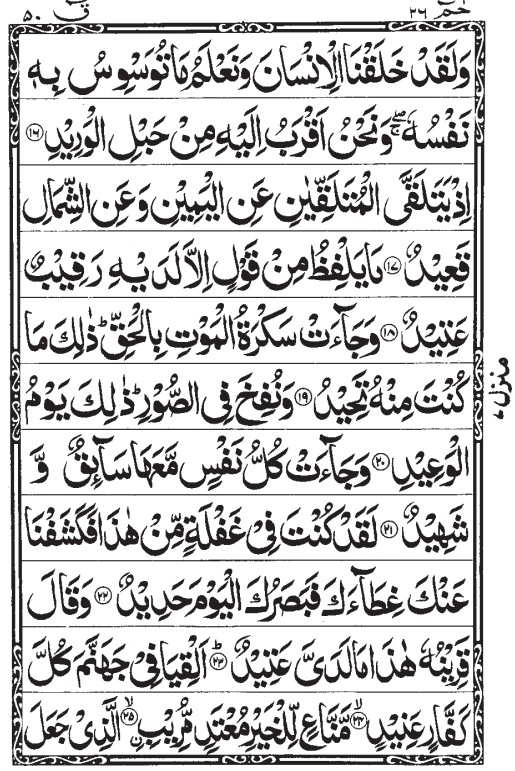 حٰمٓ ٢٦
قٓ ٥٠
وَلَقَدْ خَلَقْنَا الْاِنْسَانَ وَنَعْلَمُ مَا تُوَسْوِسُ بِهٖ
نَفْسُهٗ ۖۚ وَنَحْنُ اَقْرَبُ اِلَيْهِ مِنْ حَبْلِ الْوَرِيْدِ ﴿١٦﴾
اِذْ يَتَلَقَّى الْمُتَلَقِّيٰنِ عَنِ الْيَمِيْنِ وَعَنِ الشِّمَالِ
قَعِيْدٌ ﴿١٧﴾ مَا يَلْفِظُ مِنْ قَوْلٍ اِلَّا لَدَيْهِ رَقِيْبٌ
عَتِيْدٌ ﴿١٨﴾ وَجَآءَتْ سَكْرَةُ الْمَوْتِ بِالْحَقِّ ؕ ذٰلِكَ مَا
كُنْتَ مِنْهُ تَحِيْدُ ﴿١٩﴾ وَنُفِخَ فِى الصُّوْرِ ؕ ذٰلِكَ يَوْمُ
الْوَعِيْدِ ﴿٢٠﴾ وَجَآءَتْ كُلُّ نَفْسٍ مَّعَهَا سَآئِقٌ وَّ
شَهِيْدٌ ﴿٢١﴾ لَقَدْ كُنْتَ فِىْ غَفْلَةٍ مِّنْ هٰذَا فَكَشَفْنَا
عَنْكَ غِطَآءَكَ فَبَصَرُكَ الْيَوْمَ حَدِيْدٌ ﴿٢٢﴾ وَقَالَ
قَرِيْنُهٗ هٰذَا مَا لَدَىَّ عَتِيْدٌ ؕ﴿٢٣﴾ اَلْقِيَا فِىْ جَهَنَّمَ كُلَّ
كَفَّارٍ عَنِيْدٍ ۙ﴿٢٤﴾ مَّنَّاعٍ لِّلْخَيْرِ مُعْتَدٍ مُّرِيْبِ ۙ﴿٢٥﴾ اۨلَّذِىْ جَعَلَ
منزل ٧